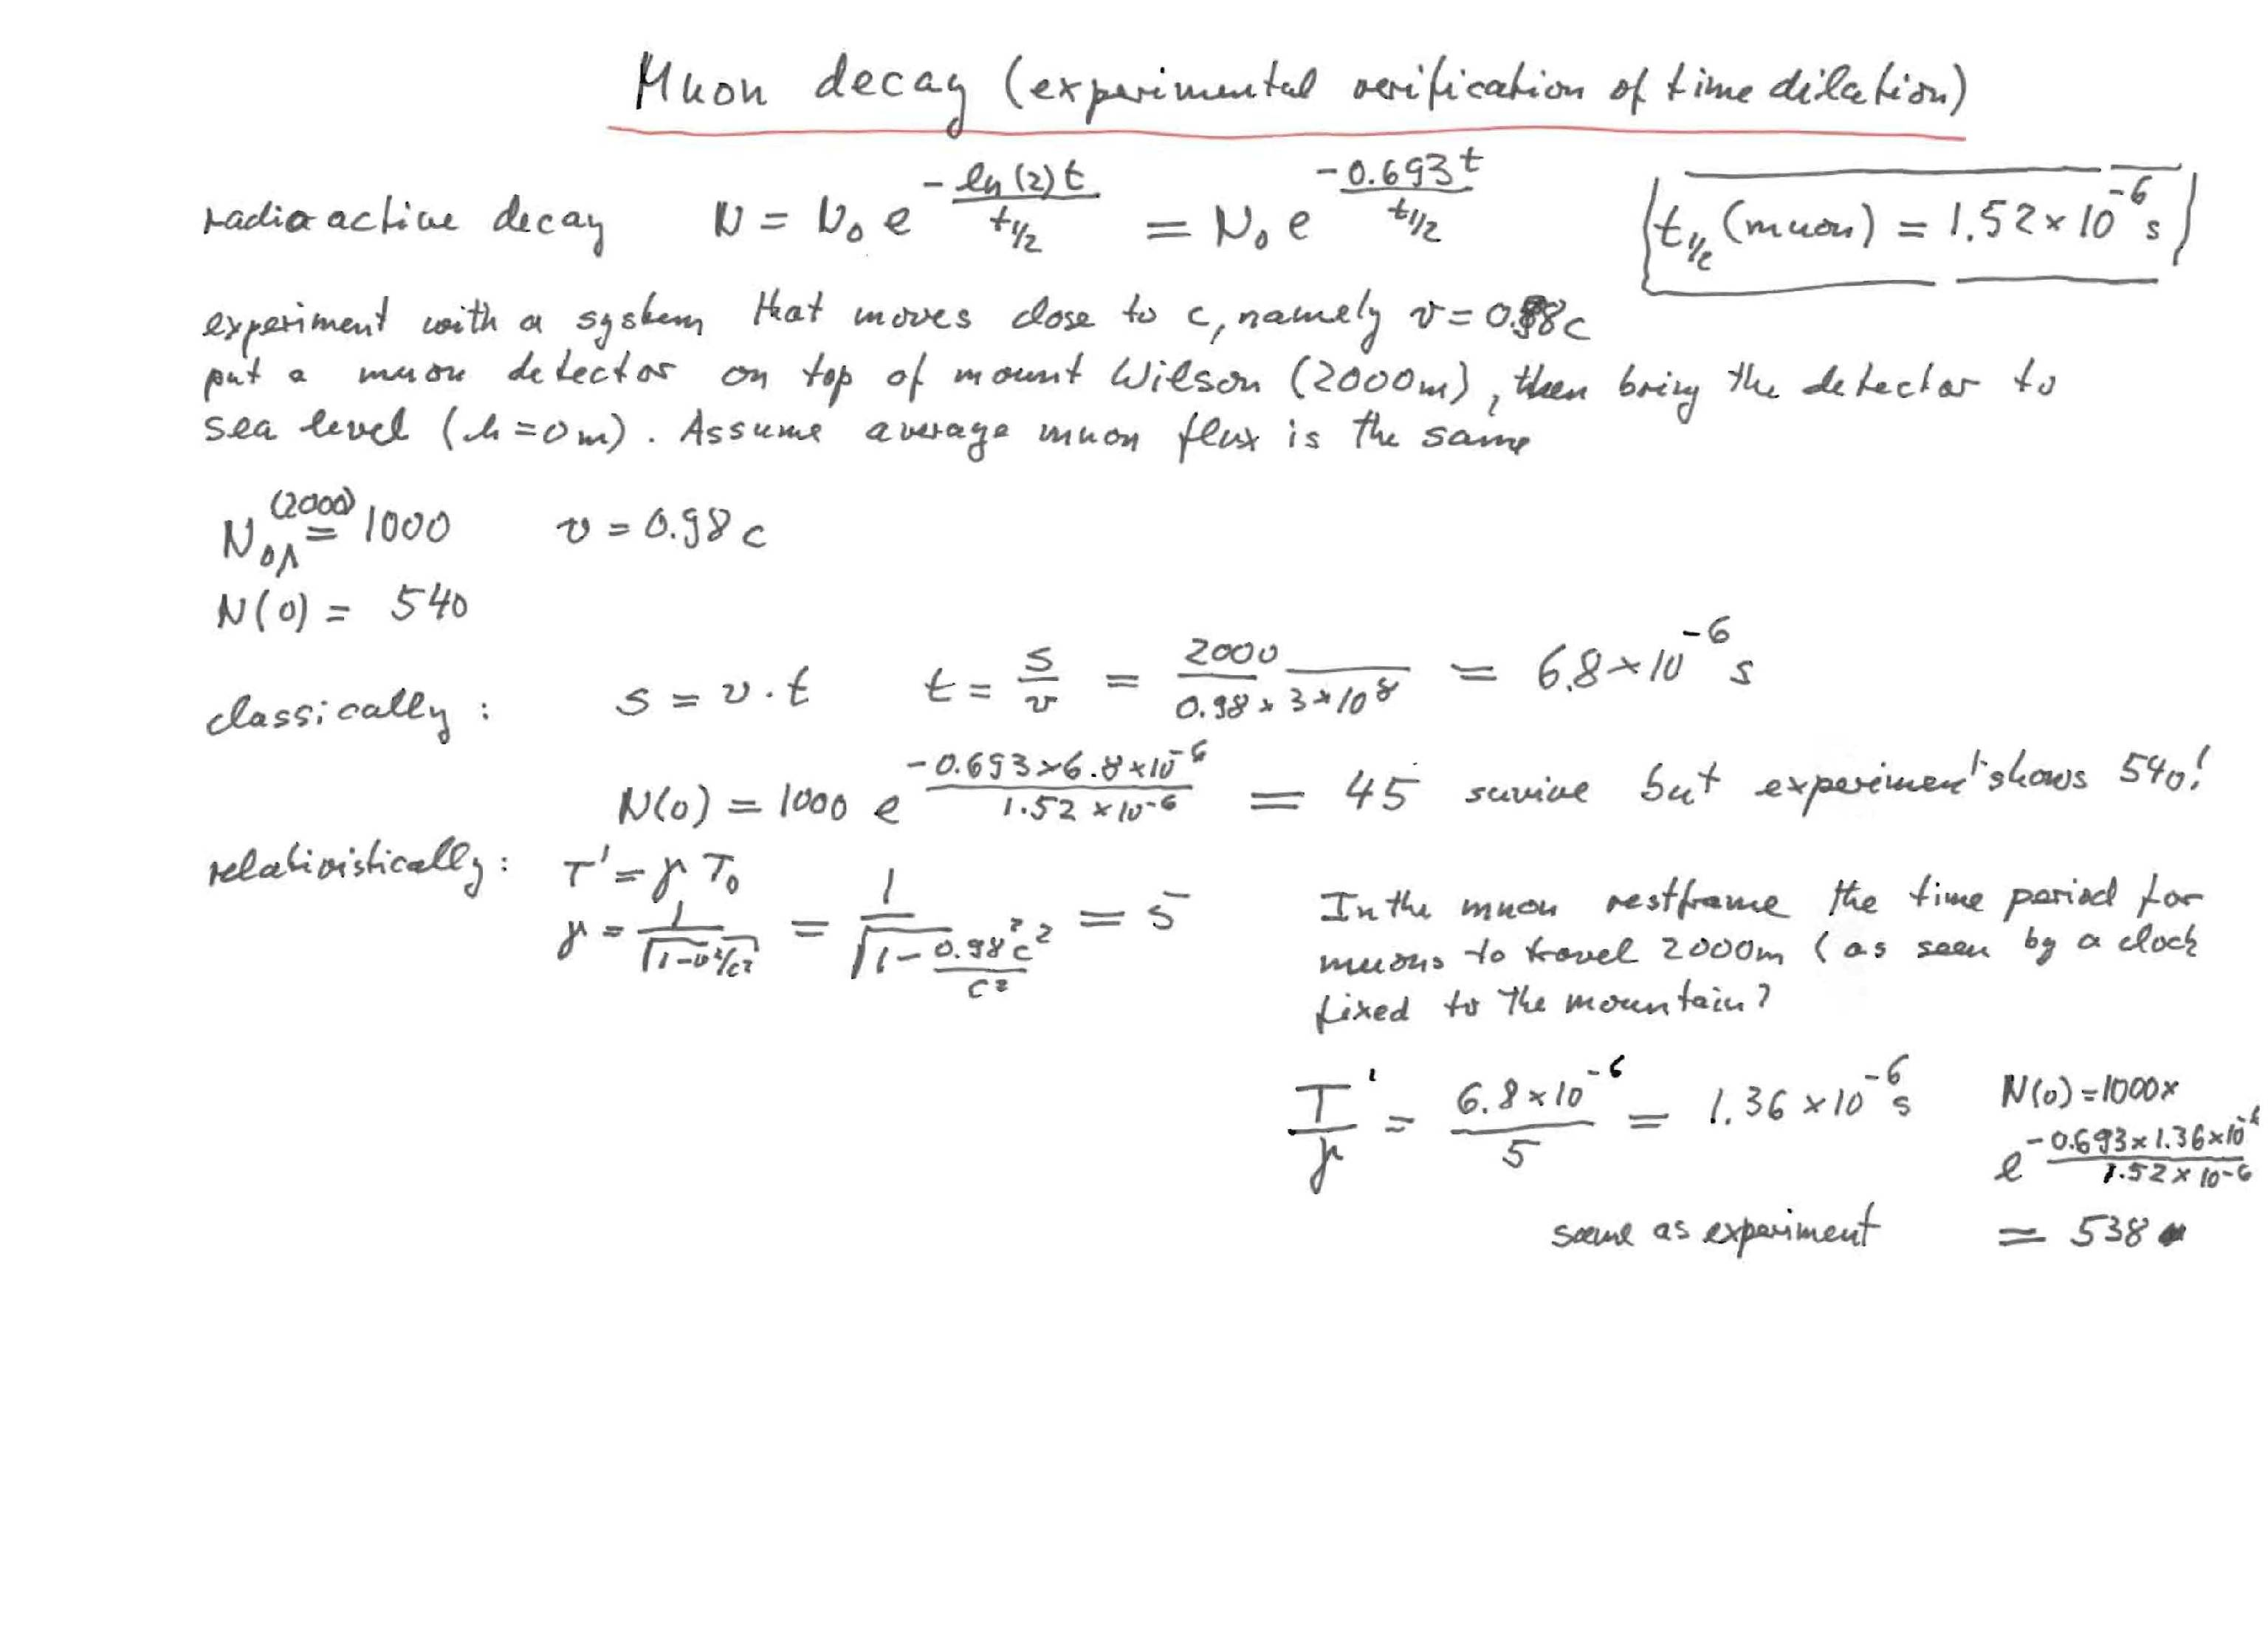 Muon decay (experimental verification of time dilation)
radioactive decay N = N₀ e^(-ln(2)t / t½) = N₀ e^(-0.693t / t½) t½ (muon) = 1.52 × 10⁻⁶ s
experiment with a system that moves close to c, namely v = 0.98c
put a muon detector on top of mount Wilson (2000m), then bring the detector to
sea level (h=0m). Assume average muon flux is the same
N₀(2000) = 1000 v = 0.98 c
N(0) = 540
classically: s = v · t t = s/v = 2000 / (0.98 × 3×10⁸) = 6.8×10⁻⁶ s
N(0) = 1000 e^(-0.693×6.8×10⁻⁶ / 1.52×10⁻⁶) = 45 survive but experiment shows 540!
relativistically: T' = γ T₀
γ = 1/√(1-v²/c²) = 1/√(1-0.98²c²/c²) = 5
In the muon restframe the time period for
muons to travel 2000m (as seen by a clock
fixed to the mountain?
T'/γ = 6.8×10⁻⁶ / 5 = 1.36 × 10⁻⁶ s
N(0) = 1000×
e^(-0.693×1.36×10⁻⁶ / 1.52×10⁻⁶)
same as experiment = 538